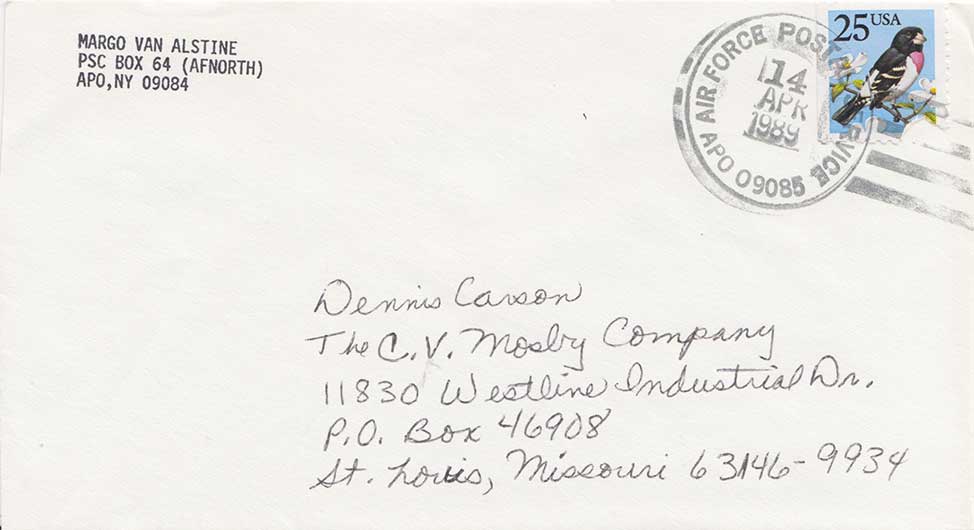 MARGO VAN ALSTINE
PSC BOX 64 (AFNORTH)
APO,NY 09084
25 USA
AIR FORCE POSTAL SERVICE
14
APR
1989
APO 09085
Dennis Carson
The C.V. Mosby Company
11830 Westline Industrial Dr.
P.O. Box 46908
St. Louis, Missouri 63146-9934